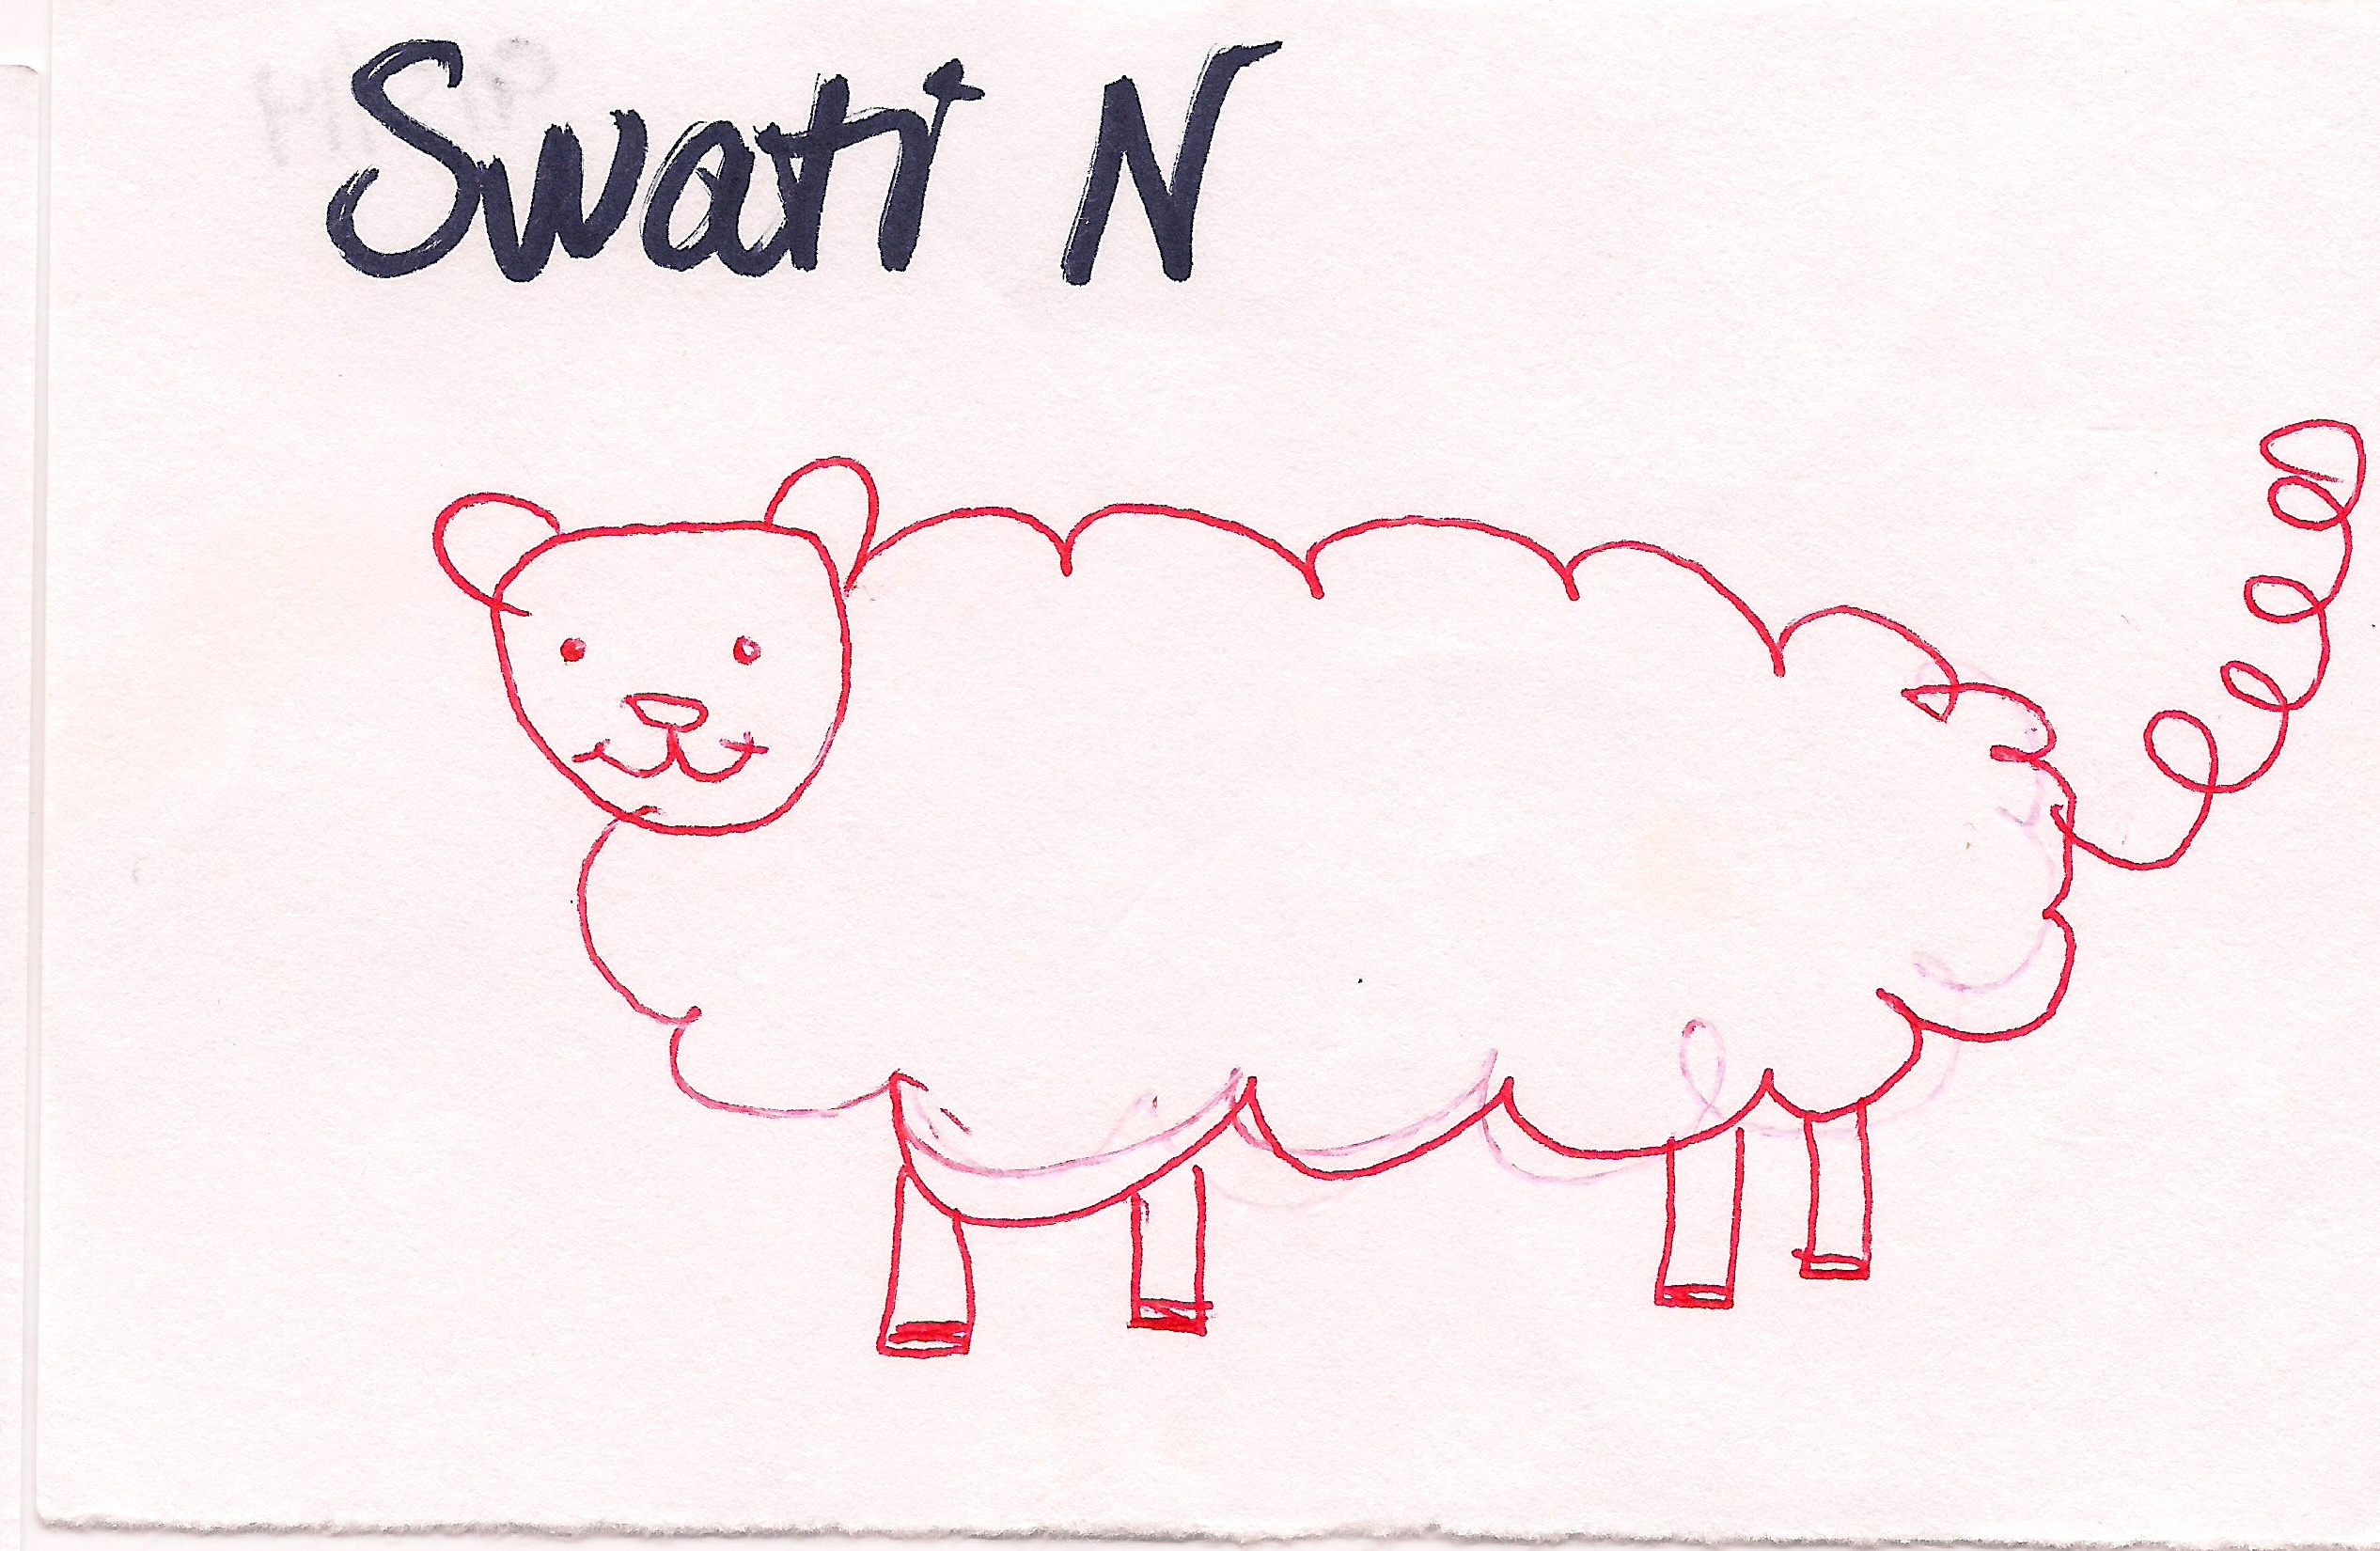 Swati N